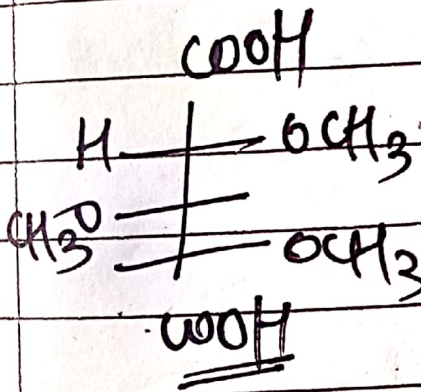 COOH
H OCH3
CH3O
OCH3
COOH